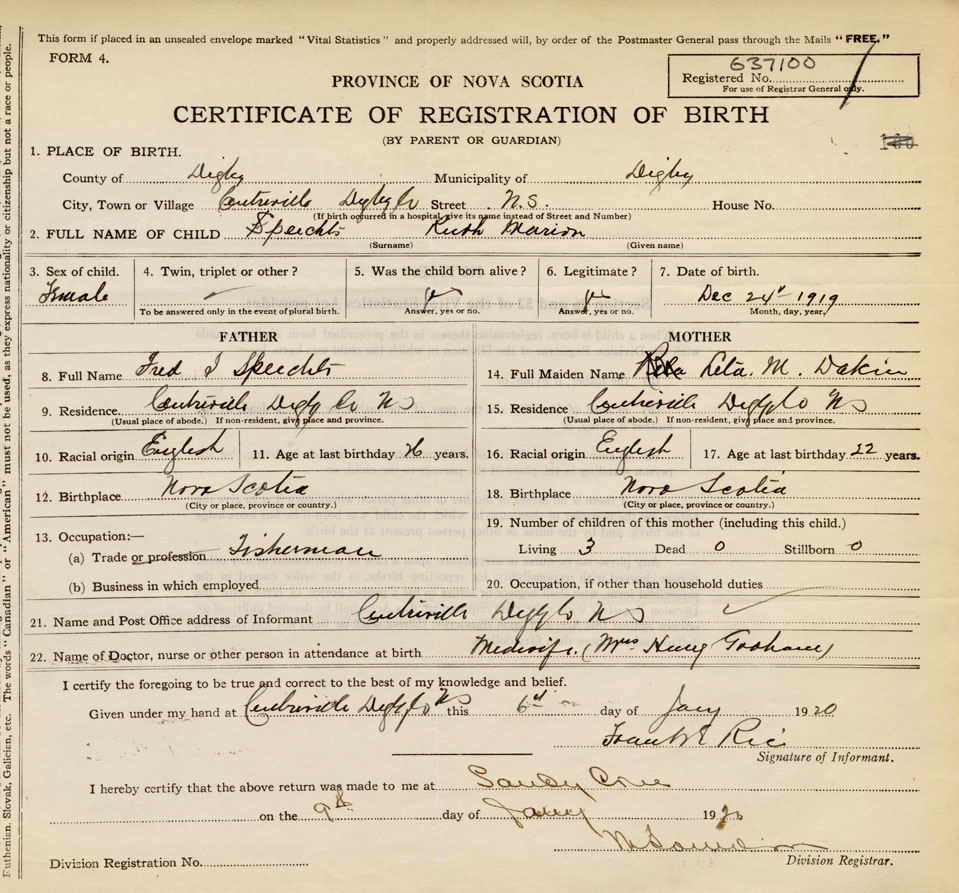 This form if placed in an unsealed envelope marked "Vital Statistics" and properly addressed will, by order of the Postmaster General pass through the Mails "FREE."
FORM 4.
637100
Registered No.
For use of Registrar General only.
PROVINCE OF NOVA SCOTIA
CERTIFICATE OF REGISTRATION OF BIRTH
(BY PARENT OR GUARDIAN)
1. PLACE OF BIRTH.
County of Digby Municipality of Digby
City, Town or Village Centreville Digby Co Street N.S. House No.
(If birth occurred in a hospital, give its name instead of Street and Number)
2. FULL NAME OF CHILD Speechts Ruth Marion
(Surname) (Given name)
3. Sex of child. 4. Twin, triplet or other? 5. Was the child born alive? 6. Legitimate? 7. Date of birth.
Female Dec 24 1919
To be answered only in the event of plural birth. Answer, yes or no. Answer, yes or no. Month, day, year.
FATHER MOTHER
8. Full Name Fred I Speechts 14. Full Maiden Name Leta. M. Dakin
9. Residence. Centreville Digby Co NS 15. Residence Centreville Digby Co NS
(Usual place of abode.) If non-resident, give place and province. (Usual place of abode.) If non-resident, give place and province.
10. Racial origin English 11. Age at last birthday 26 years. 16. Racial origin English 17. Age at last birthday 22 years.
12. Birthplace Nova Scotia 18. Birthplace Nova Scotia
(City or place, province or country.) (City or place, province or country.)
13. Occupation:— 19. Number of children of this mother (including this child.)
(a) Trade or profession Fisherman Living 3 Dead 0 Stillborn 0
(b) Business in which employed 20. Occupation, if other than household duties
21. Name and Post Office address of Informant Centreville Digby Co N S
22. Name of Doctor, nurse or other person in attendance at birth Midwife. (Mrs Henry
I certify the foregoing to be true and correct to the best of my knowledge and belief.
Given under my hand at Centreville Digby Co NS this 6 day of Jany 1920
Frank E Rice
Signature of Informant.
I hereby certify that the above return was made to me at Sandy Cove
on the 9th day of Jany 1920
Division Registration No. Division Registrar.
Ruthenian, Slovak, Galician, etc. The words "Canadian" or "American" must not be used, as they express nationality or citizenship but not a race or people.